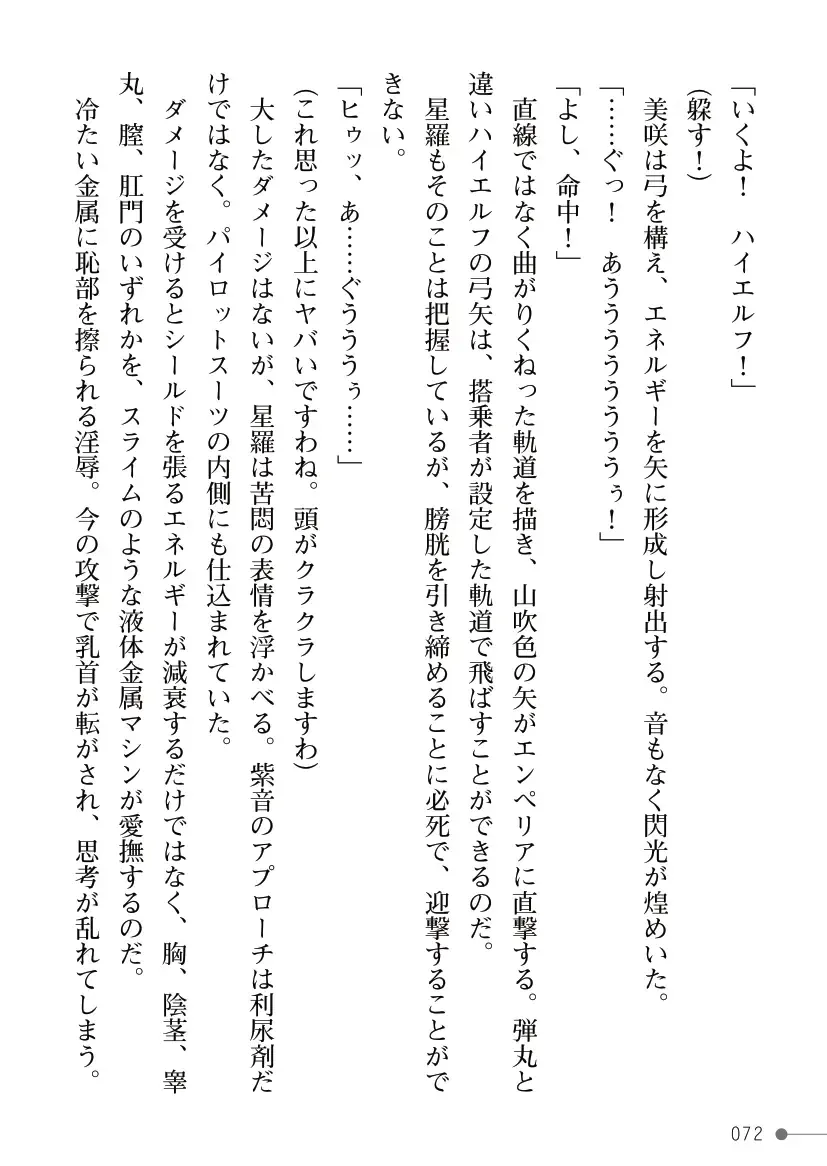 「いくよ！　ハイエルフ！」
(躱す！)
美咲は弓を構え、エネルギーを矢に形成し射出する。音もなく閃光が煌めいた。
「……ぐっ！　あうううううううぅ！」
「よし、命中！」
直線ではなく曲がりくねった軌道を描き、山吹色の矢がエンペリアに直撃する。弾丸と
違いハイエルフの弓矢は、搭乗者が設定した軌道で飛ばすことができるのだ。
星羅もそのことは把握しているが、膀胱を引き締めることに必死で、迎撃することがで
きない。
「ヒゥッ、あ……ぐうううぅ……」
(これ思った以上にヤバいですわね。頭がクラクラしますわ)
大したダメージはないが、星羅は苦悶の表情を浮かべる。紫音のアプローチは利尿剤だ
けではなく。パイロットスーツの内側にも仕込まれていた。
ダメージを受けるとシールドを張るエネルギーが減衰するだけではなく、胸、陰茎、睾
丸、膣、肛門のいずれかを、スライムのような液体金属マシンが愛撫するのだ。
冷たい金属に恥部を擦られる淫辱。今の攻撃で乳首が転がされ、思考が乱れてしまう。
072